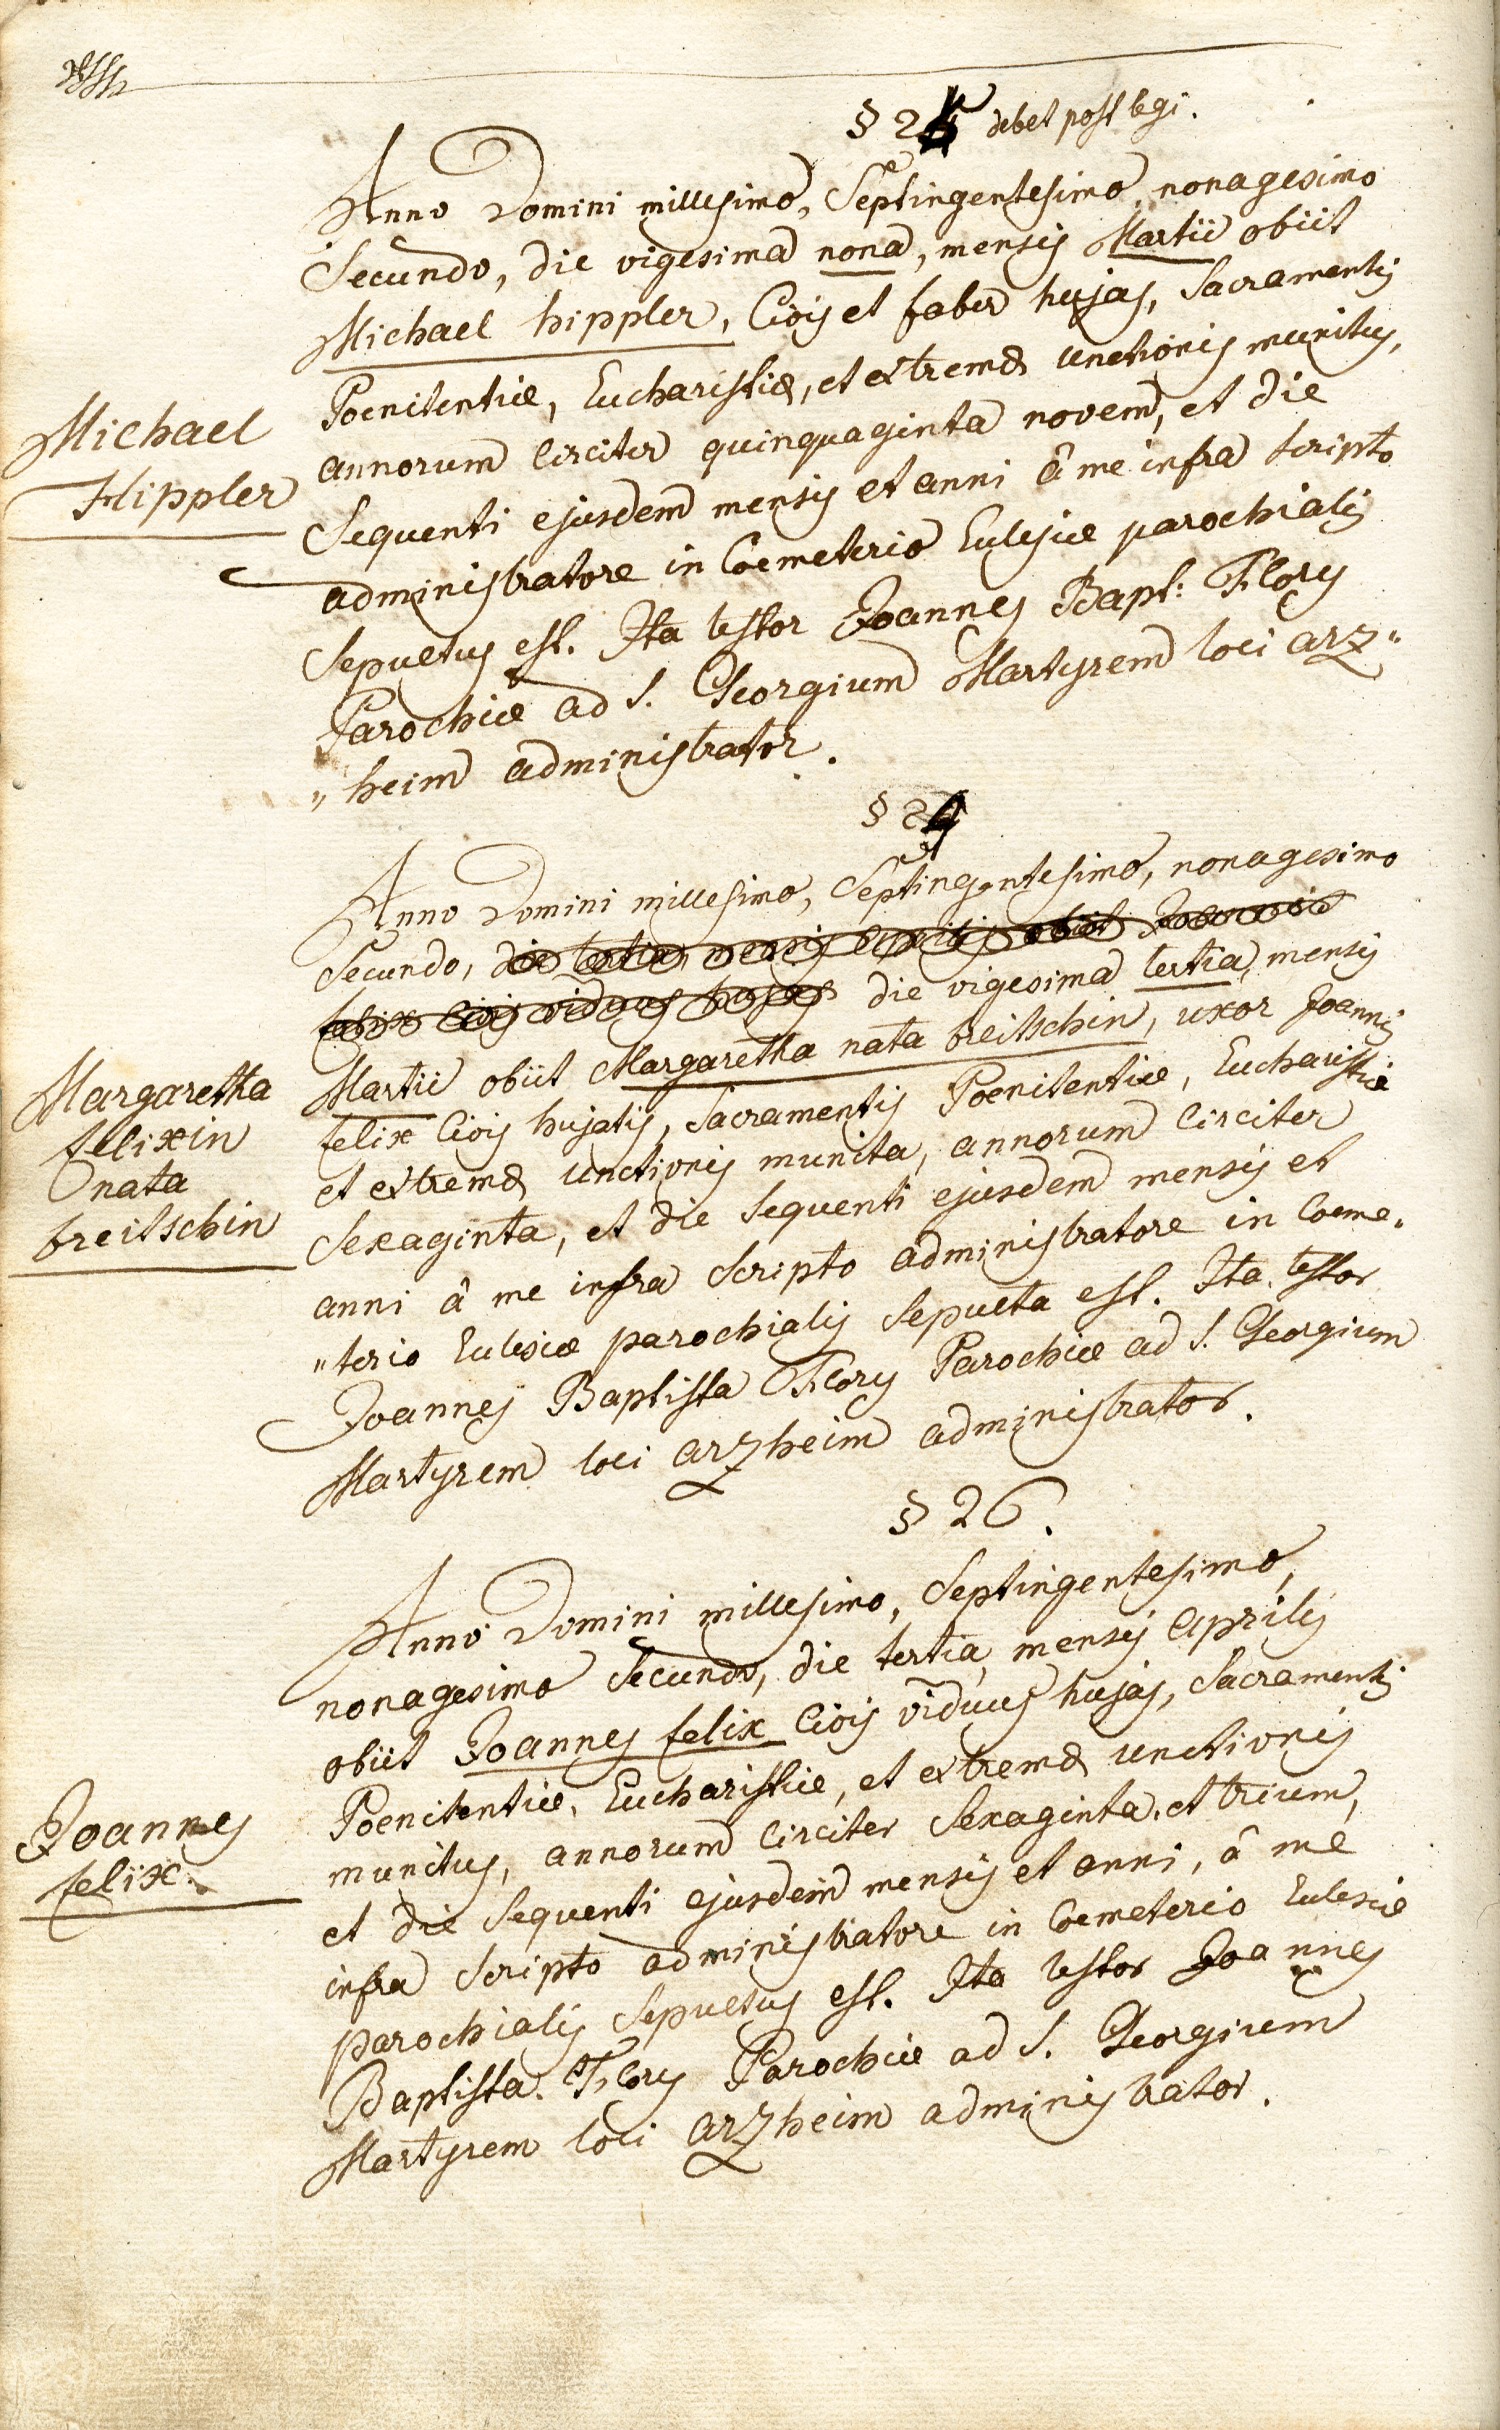 § 25 debet post legi.
Anno Domini millesimo, Septingentesimo nonagesimo
Secundo, die vigesima nona, mensis Martii obiit
Michael hippler, Civis et faber hujas, Sacramentis
Poenitentiæ, Eucharistiæ, et extremæ unctionis munitus,
Michael
annorum circiter quinquaginta novem, et die
Hippler
Sequenti ejusdem mensis et anni â me infra scripto
administratore in Coemeterio Eclesiæ parochialis
Sepultus est. Ita testor Joannes Bapt: Flory
Parochiæ ad S. Georgium Martyrem loci arz"
"heim administrator.
§ 24
Anno Domini millesimo, Septingentesimo, nonagesimo
Secundo, die tertia, mensis Aprilis obiit Joannes
felix Civis viduus hujas die vigesima tertia mensis
Martii obiit Margaretha nata breitschin, uxor Joannis
Margaretha
felix Civis hujatis, Sacramentis Poenitentiæ, Eucharistiæ
felixin
et extremæ unctionis munita, annorum circiter
nata
Sexaginta, et die Sequenti ejusdem mensis et
breitschin
anni â me infra Scripto administratore in Coeme"
"terio Eclesiæ parochialis Sepulta est. Ita testor
Joannes Baptista Flory Parochiæ ad S. Georgium
Martyrem loci arzheim administrator.
§ 26.
Anno Domini millesimo, Septingentesimo,
nonagesimo Secundo, die tertia mensis Aprilis
obiit Joannes felix Civis viduus hujas, Sacramentis
Poenitentiæ, Eucharistiæ, et extremæ unctionis
Joannes
munitus, annorum circiter Sexaginta et trium,
felix.
et die Sequenti ejusdem mensis et anni, â me
infra Scripto administratore in Coemeterio Eclesiæ
parochialis Sepultus est. Ita testor Joannes
Baptista Flory Parochiæ ad S. Georgium
Martyrem loci arzheim administrator.